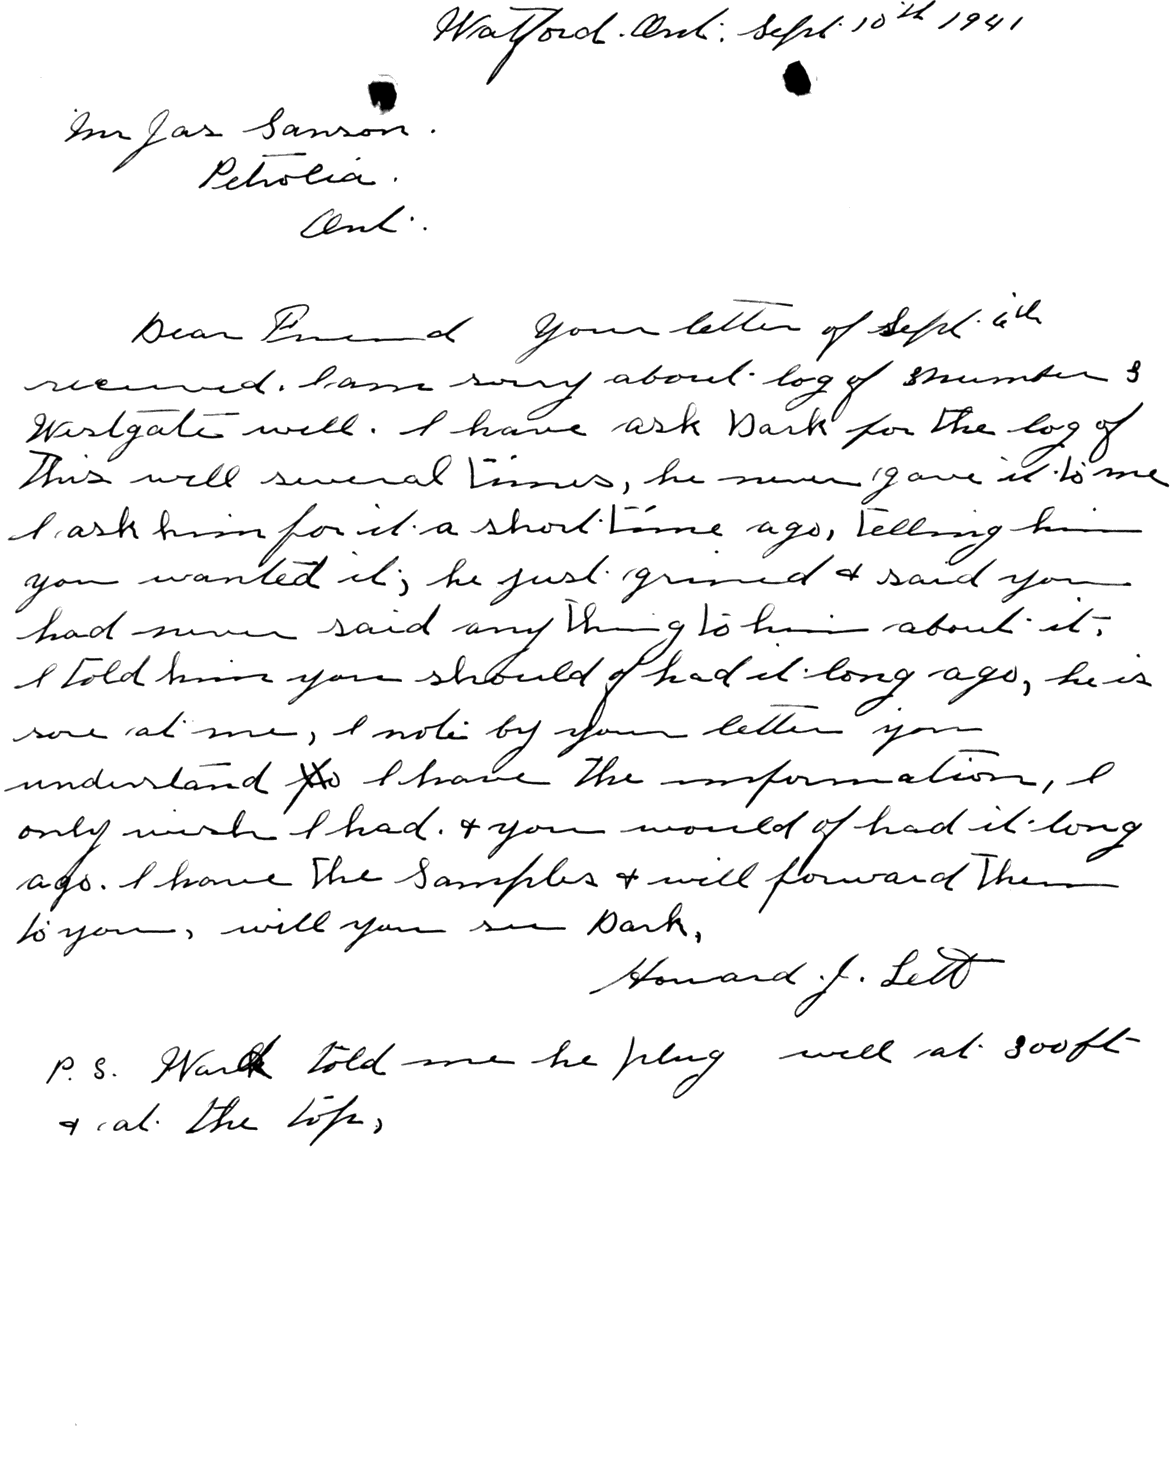 Watford. Ont. Sept 10th 1941
Mr Jas Sanson.
Petrolia.
Ont.
Dear Friend Your letter of Sept. 6th
received. I am sorry about log of number 3
Westgate well. I have ask Dark for the log of
This well several times, he never gave it to me
I ask him for it a short time ago, telling him
you wanted it, he just grined & said you
had never said any thing to him about it.
I told him you should of had it long ago, he is
sore at me, I note by your letter you
understand I have the information, I
only wish I had. & you would of had it long
ago. I have the Samples & will forward them
to you, will you see Dark,
Howard J. Lett
P. S. told me he plug well at 300 ft
& at the top,